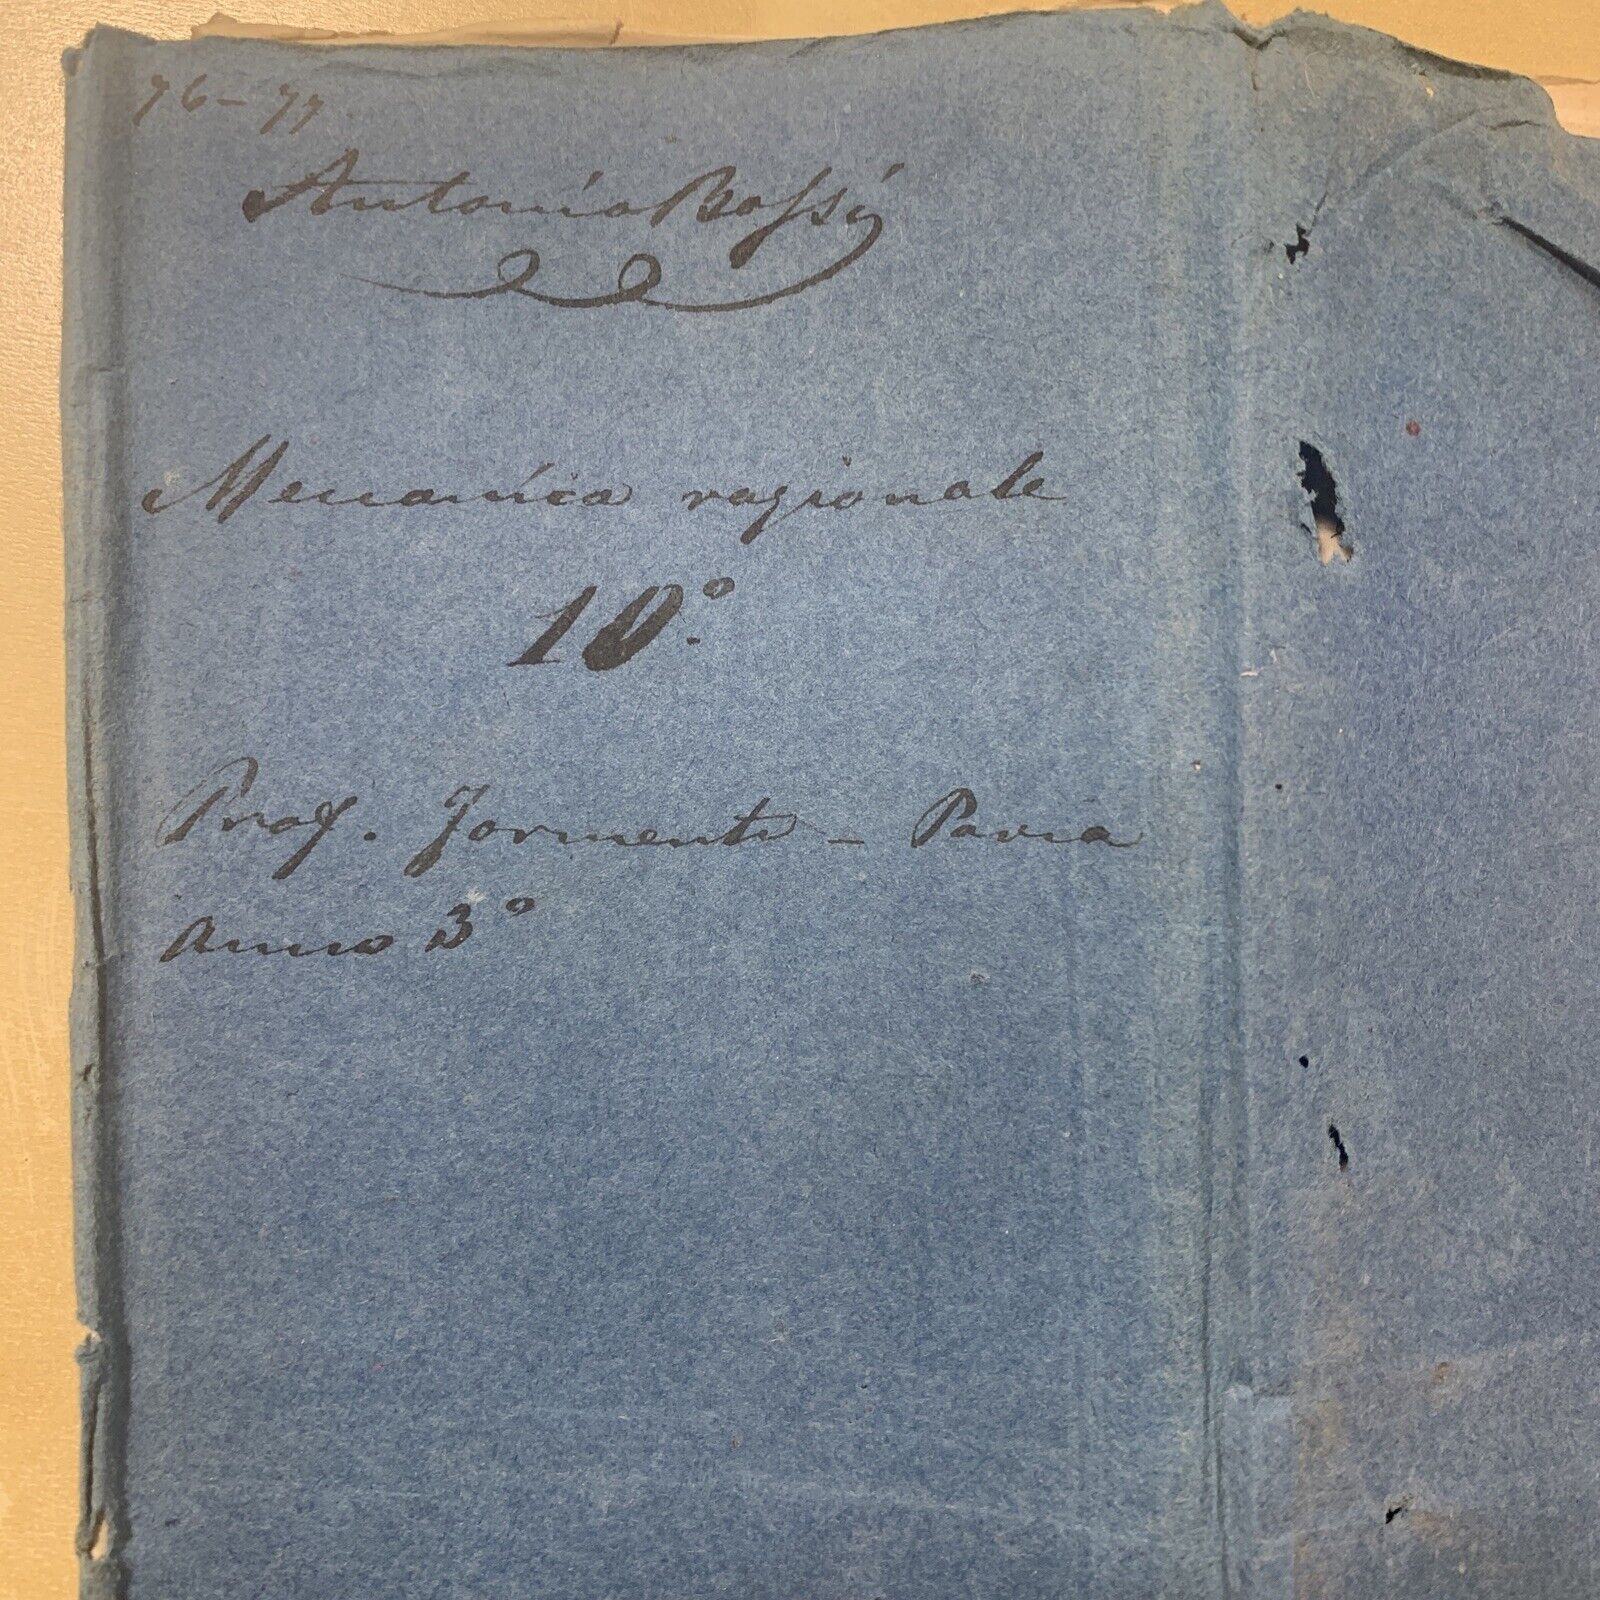 76-77
Antonio Bossi
Meccanica razionale
10.°
Prof. Formenti - Pavia
Anno 3°